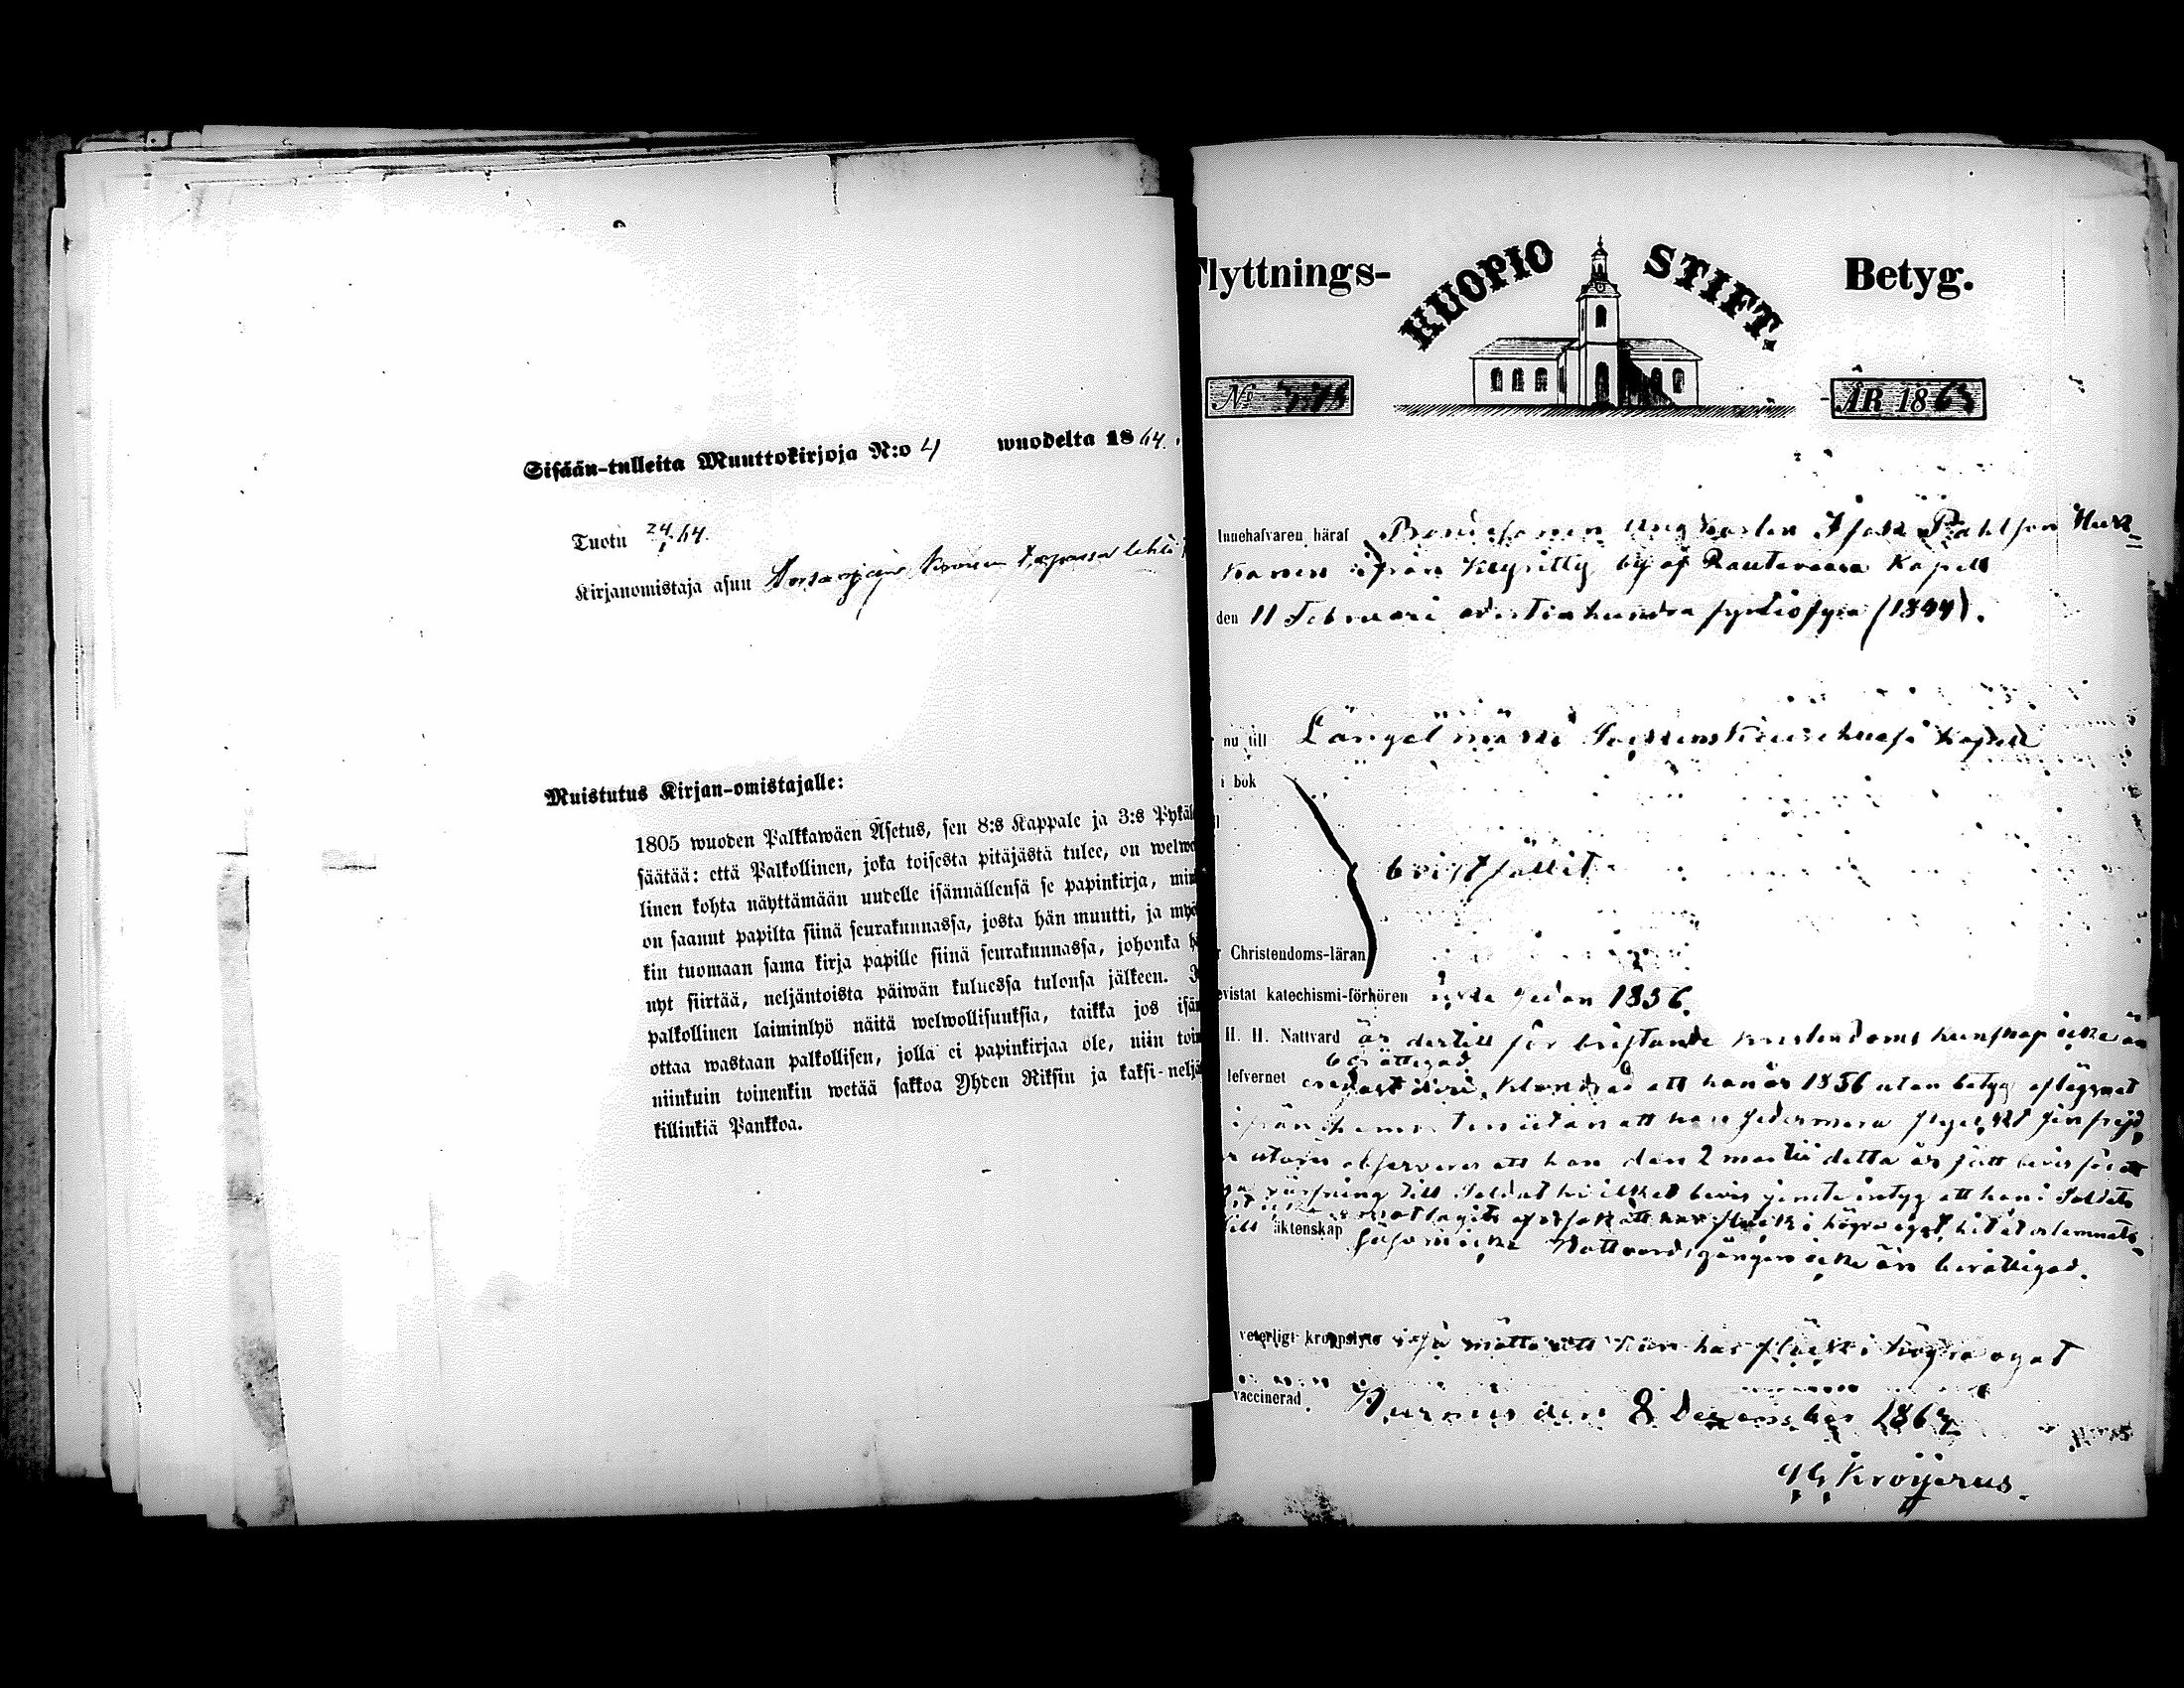 Sisään-tulleita Muuttokirjoja N:o 4 wuodelta 1864.
Tuotu 24/1 64.
Kirjanomistaja asuu
Muistutus Kirjan-omistajalle:
1805 wuoden Palkkawäen Asetus, sen 8:s Kappale ja 3:s Pykäl
säätää: että Palkollinen, joka toisesta pitäjästä tulee, on welwo
linen kohta näyttämään uudelle isännällensä se papinkirja, min
on saanut papilta siinä seurakunnassa, josta hän muutti, ja myö
kin tuomaan sama kirja papille siinä seurakunnassa, johonka h
nyt siirtää, neljäntoista päiwän kuluessa tulonsa jälkeen. J
palkollinen laiminlyö näitä welwollisuuksia, taikka jos isän
ottaa wastaan palkollisen, jolla ei papinkirjaa ole, niin toin
niinkuin toinenkin wetää sakkoa Yhden Riksin ja kaksi-neljä
killinkiä Pankkoa.
Flyttnings- KUOPIO STIFT. Betyg.
No ÅR 1863
Innehafvaren häraf Bondesonen Ungkarlen Isak Pahlson Hurs-
kanen ifrån Keyritty by af Rautavaara Kapell
den 11 Februari adertonhundra fyrtiofyra (1844).
nu till Längelmäki Kapell
i bok
bristfälligt
r Christendoms-läran
evistat katechismi-förhören icke sedan 1856.
H. H. Nattvard är dertill för bristande kristendoms kunskap icke än
berättigad
lefvernet att han år 1856 utan betyg aflägsnat
ifrån hemorten utan att han sedermera styrkt sin frejd,
utom observeras att han den 2 martii detta år fått bevis för at
värfning till Soldat hvilket bevis jemte intyg att han i Soldats
mottagits af orsak att han har fläck i högra ögat, hit återlemnats
till äktenskap såsom icke Nattvardsgången icke är berättigad.
veterligt kroppslyte i så måtto att han har fläck i högra ögat
vaccinerad. Nurmis den 8 December 1863
Kroijerus.